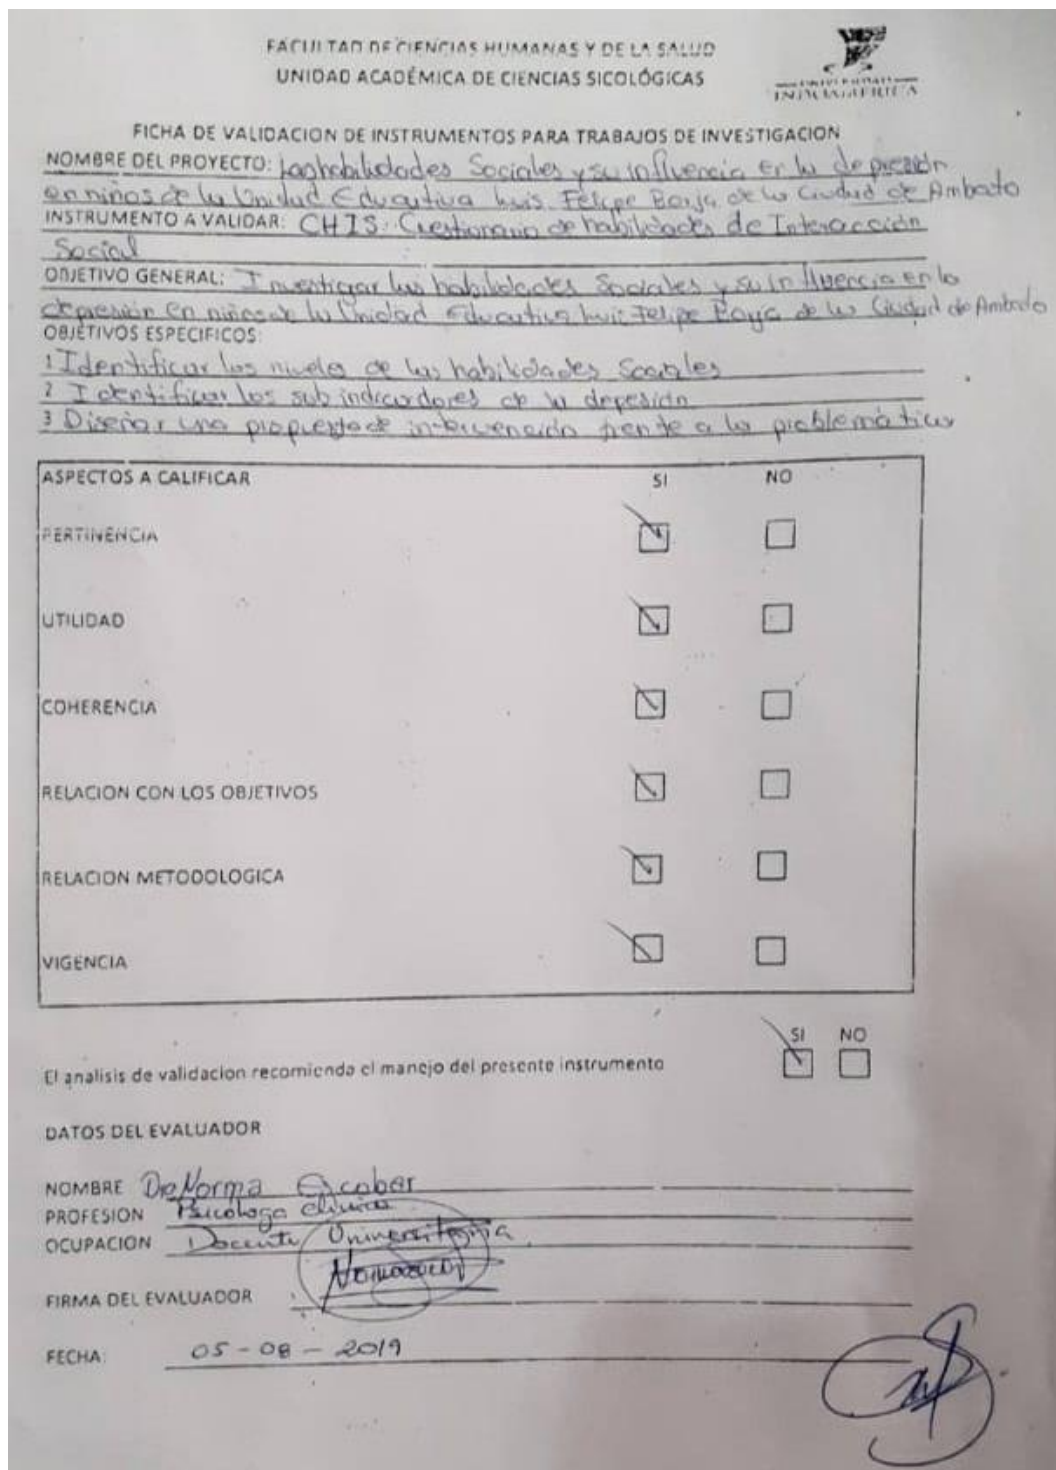 FACULTAD DE CIENCIAS HUMANAS Y DE LA SALUD
UNIDAD ACADÉMICA DE CIENCIAS SICOLÓGICAS
UNIVERSIDAD
INDOAMÉRICA
FICHA DE VALIDACION DE INSTRUMENTOS PARA TRABAJOS DE INVESTIGACION
NOMBRE DEL PROYECTO: Las habilidades Sociales y su influencia en la depresión
en niños de la Unidad Educativa Luis Felipe Borja de la Ciudad de Ambato
INSTRUMENTO A VALIDAR: CHIS: Cuestionario de habilidades de Interacción
Social
OBJETIVO GENERAL: Investigar las habilidades Sociales y su influencia en la
depresión en niños de la Unidad Educativa Luis Felipe Borja de la Ciudad de Ambato
OBJETIVOS ESPECIFICOS:
1 Identificar los niveles de las habilidades Sociales
2 Identificar los sub indicadores de la depresión
3 Diseñar una propuesta de intervención frente a la problemática
ASPECTOS A CALIFICAR SI NO
PERTINENCIA
UTILIDAD
COHERENCIA
RELACION CON LOS OBJETIVOS
RELACION METODOLOGICA
VIGENCIA
SI NO
El analisis de validacion recomienda el manejo del presente instrumento
DATOS DEL EVALUADOR
NOMBRE Dra Norma Escobar
PROFESION Psicóloga Clínica
OCUPACION Docente Universitaria
FIRMA DEL EVALUADOR
FECHA: 05-08-2019